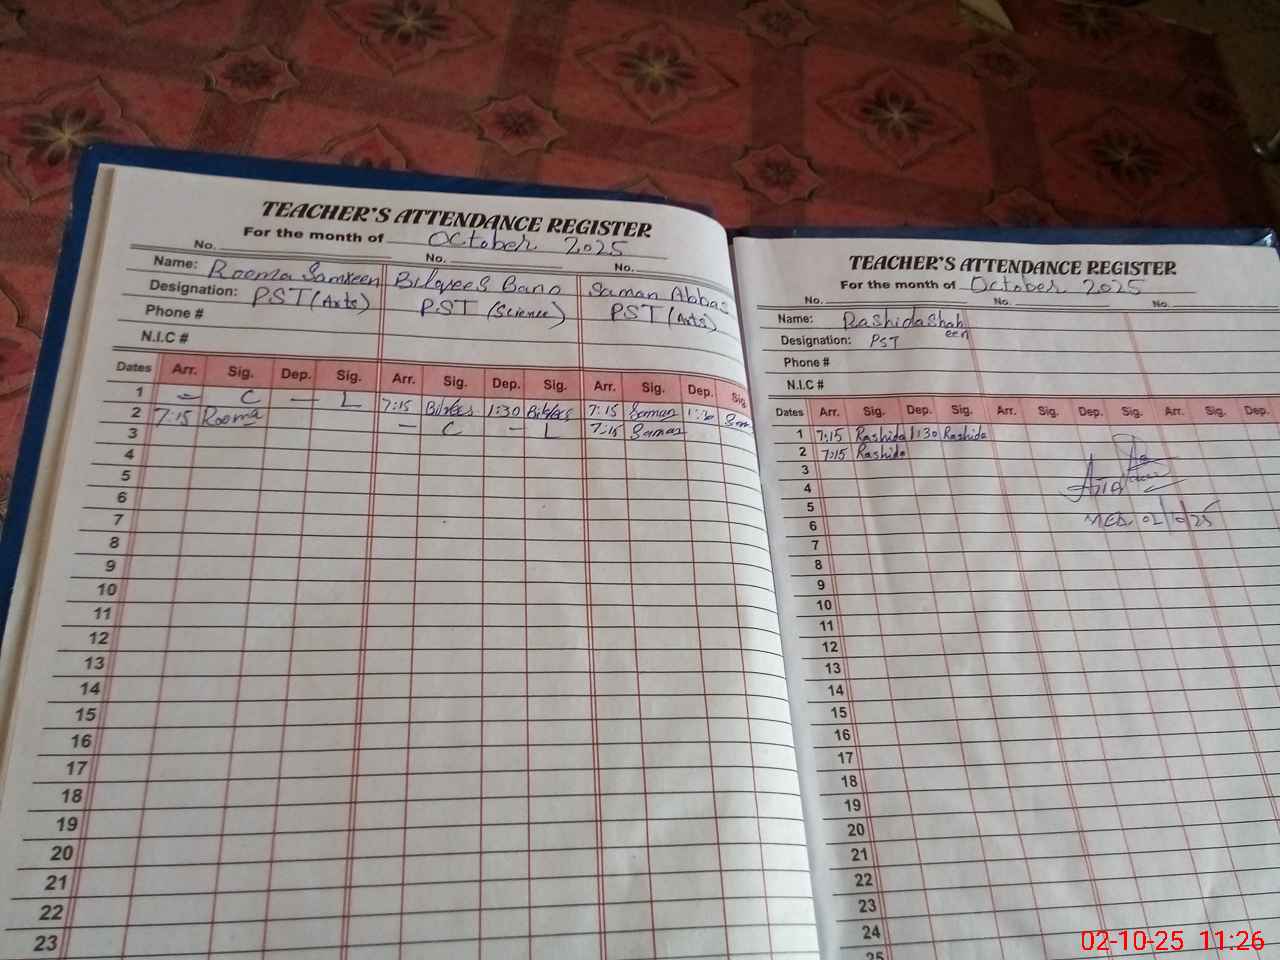 TEACHER'S ATTENDANCE REGISTER
For the month of October 2025
No. No. No.
Name: Rooma Samreen Bilqees Bano Saman Abbas
Designation: PST (Arts) PST (Science) PST (Arts)
Phone #
N.I.C #
Dates Arr. Sig. Dep. Sig. Arr. Sig. Dep. Sig. Arr. Sig. Dep. Sig.
1 — C — L 7:15 Bilqees 1:30 Bilqees 7:15 Saman 1:30 Sam
2 7:15 Rooma — C — L 7:15 Saman
3
4
5
6
7
8
9
10
11
12
13
14
15
16
17
18
19
20
21
22
23
TEACHER'S ATTENDANCE REGISTER
For the month of October 2025
No. No. No.
Name: Rashida Shaheen
Designation: PST
Phone #
N.I.C #
Dates Arr. Sig. Dep. Sig. Arr. Sig. Dep. Sig. Arr. Sig. Dep.
1 7:15 Rashida 1:30 Rashida
2 7:15 Rashida
3
4
5
02/10/25
6
7
8
9
10
11
12
13
14
15
16
17
18
19
20
21
22
23
24
25
02-10-25 11:26